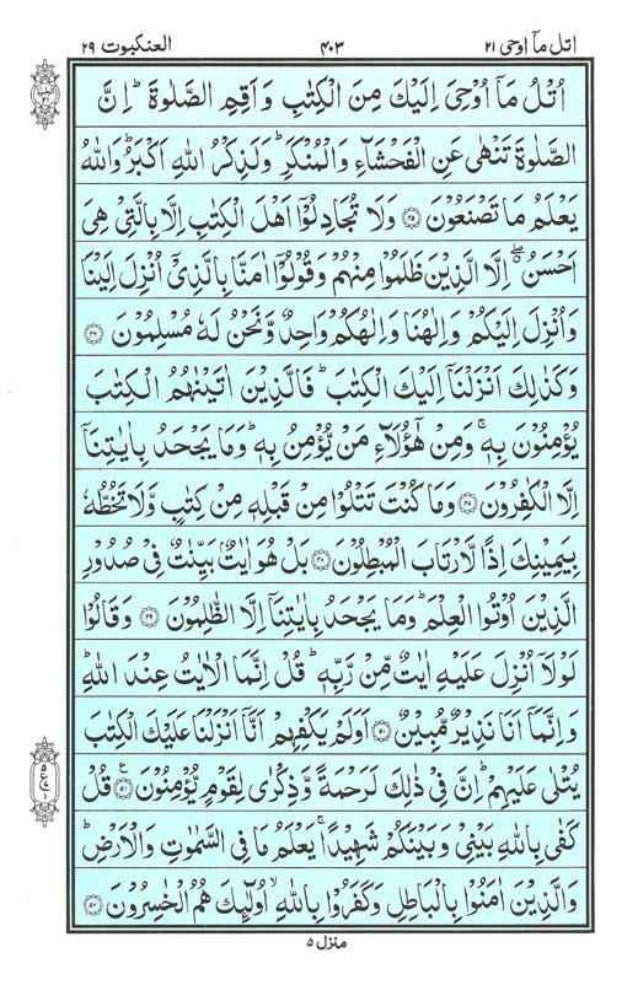 اتل مآ اوحی ۲۱ ۴۰۳ العنکبوت ۲۹
اُتْلُ مَاۤ اُوْحِیَ اِلَیْكَ مِنَ الْكِتٰبِ وَ اَقِمِ الصَّلٰوةَ ؕ اِنَّ
الصَّلٰوةَ تَنْهٰی عَنِ الْفَحْشَآءِ وَ الْمُنْكَرِ ؕ وَ لَذِكْرُ اللّٰهِ اَكْبَرُ ؕ وَ اللّٰهُ
یَعْلَمُ مَا تَصْنَعُوْنَ ﴿۴۵﴾ وَ لَا تُجَادِلُوْۤا اَهْلَ الْكِتٰبِ اِلَّا بِالَّتِیْ هِیَ
اَحْسَنُ ۖۗ اِلَّا الَّذِیْنَ ظَلَمُوْا مِنْهُمْ وَ قُوْلُوْۤا اٰمَنَّا بِالَّذِیْۤ اُنْزِلَ اِلَیْنَا
وَ اُنْزِلَ اِلَیْكُمْ وَ اِلٰهُنَا وَ اِلٰهُكُمْ وَاحِدٌ وَّ نَحْنُ لَهٗ مُسْلِمُوْنَ ﴿۴۶﴾
وَ كَذٰلِكَ اَنْزَلْنَاۤ اِلَیْكَ الْكِتٰبَ ؕ فَالَّذِیْنَ اٰتَیْنٰهُمُ الْكِتٰبَ
یُؤْمِنُوْنَ بِهٖ ۚ وَ مِنْ هٰۤؤُلَآءِ مَنْ یُّؤْمِنُ بِهٖ ؕ وَ مَا یَجْحَدُ بِاٰیٰتِنَاۤ
اِلَّا الْكٰفِرُوْنَ ﴿۴۷﴾ وَ مَا كُنْتَ تَتْلُوْا مِنْ قَبْلِهٖ مِنْ كِتٰبٍ وَّ لَا تَخُطُّهٗ
بِیَمِیْنِكَ اِذًا لَّارْتَابَ الْمُبْطِلُوْنَ ﴿۴۸﴾ بَلْ هُوَ اٰیٰتٌۢ بَیِّنٰتٌ فِیْ صُدُوْرِ
الَّذِیْنَ اُوْتُوا الْعِلْمَ ؕ وَ مَا یَجْحَدُ بِاٰیٰتِنَاۤ اِلَّا الظّٰلِمُوْنَ ﴿۴۹﴾ وَ قَالُوْا
لَوْ لَاۤ اُنْزِلَ عَلَیْهِ اٰیٰتٌ مِّنْ رَّبِّهٖ ؕ قُلْ اِنَّمَا الْاٰیٰتُ عِنْدَ اللّٰهِ ؕ
وَ اِنَّمَاۤ اَنَا نَذِیْرٌ مُّبِیْنٌ ﴿۵۰﴾ اَوَ لَمْ یَكْفِهِمْ اَنَّاۤ اَنْزَلْنَا عَلَیْكَ الْكِتٰبَ
یُتْلٰی عَلَیْهِمْ ؕ اِنَّ فِیْ ذٰلِكَ لَرَحْمَةً وَّ ذِكْرٰی لِقَوْمٍ یُّؤْمِنُوْنَ ﴿۵۱﴾ ع قُلْ
كَفٰی بِاللّٰهِ بَیْنِیْ وَ بَیْنَكُمْ شَهِیْدًا ۚ یَعْلَمُ مَا فِی السَّمٰوٰتِ وَ الْاَرْضِ ؕ
وَ الَّذِیْنَ اٰمَنُوْا بِالْبَاطِلِ وَ كَفَرُوْا بِاللّٰهِ ۙ اُولٰٓىِٕكَ هُمُ الْخٰسِرُوْنَ ﴿۵۲﴾
۵
ع
۱
منزل ۵